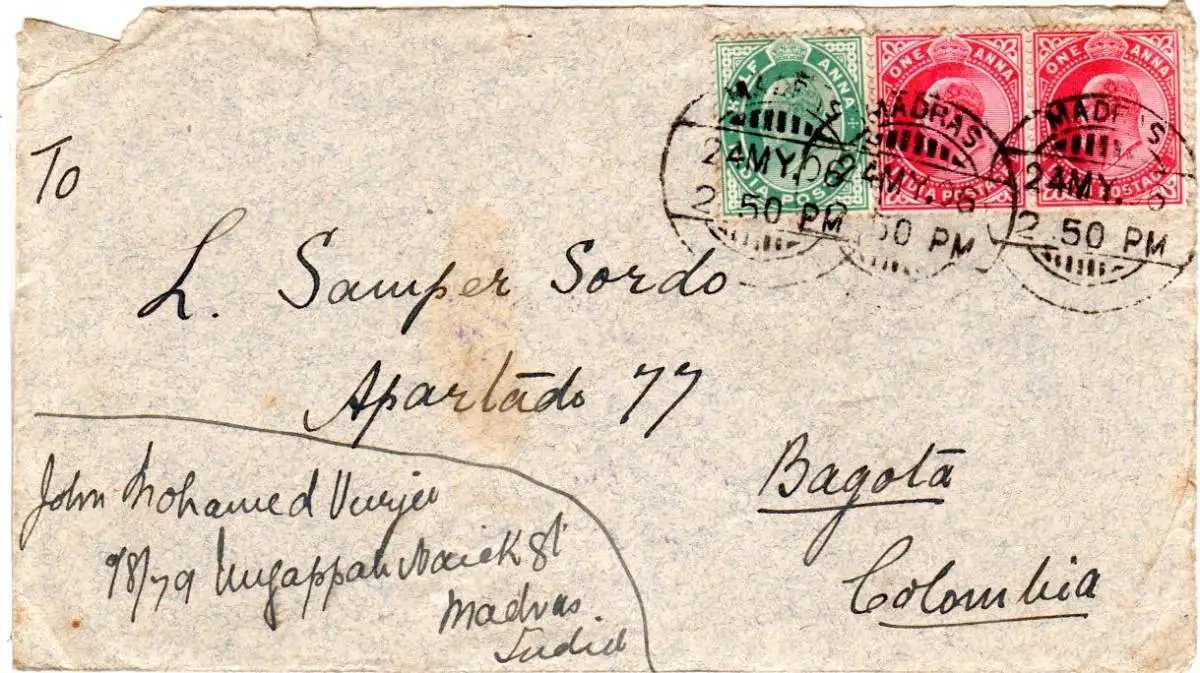 HALF ANNA
INDIA POSTAGE
ONE ANNA
INDIA POSTAGE
ONE ANNA
INDIA POSTAGE
MADRAS
24MY.06
2.50 PM
MADRAS
24MY.06
2.50 PM
MADRAS
24MY.06
2.50 PM
To
L. Samper Sordo
Apartādo 77
Bagotā
Colombia
John Mohamed
78/79 Naick St
Madras
India